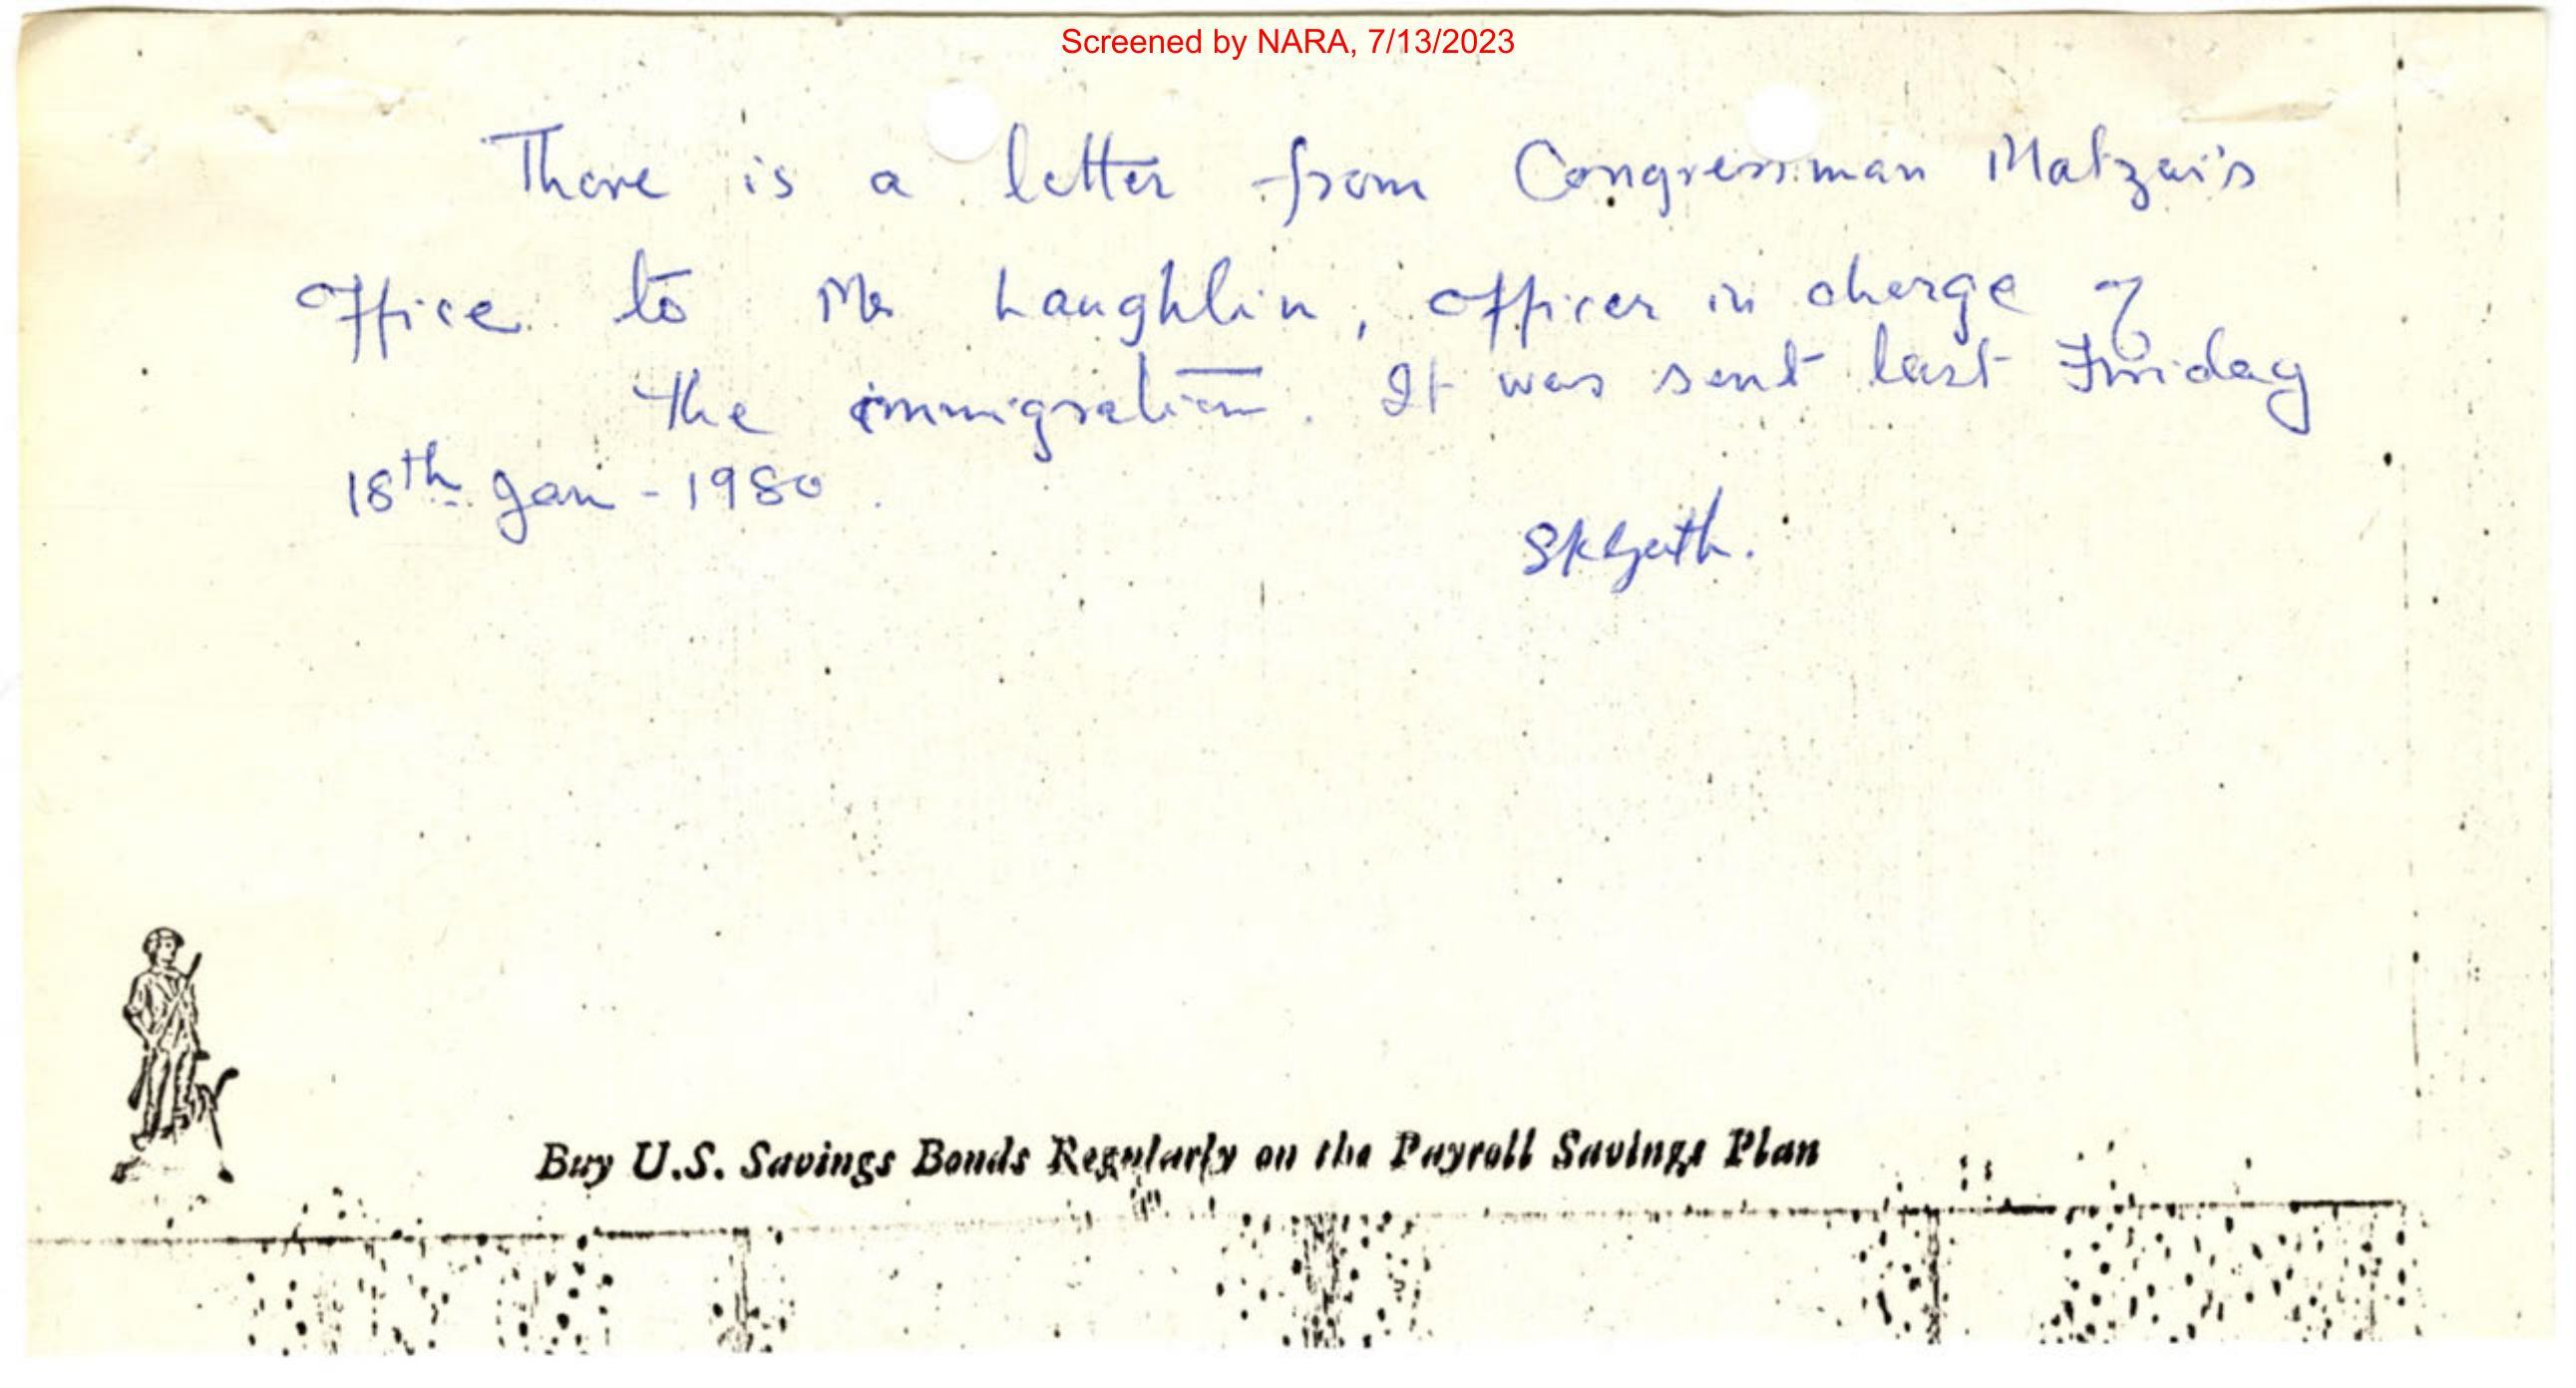 Screened by NARA, 7/13/2023
There is a letter from Congressman Matzui's
office to Mr Laughlin, officer in charge of
the immigration. It was sent last Friday
18th Jan - 1980.
Buy U.S. Savings Bonds Regularly on the Payroll Savings Plan